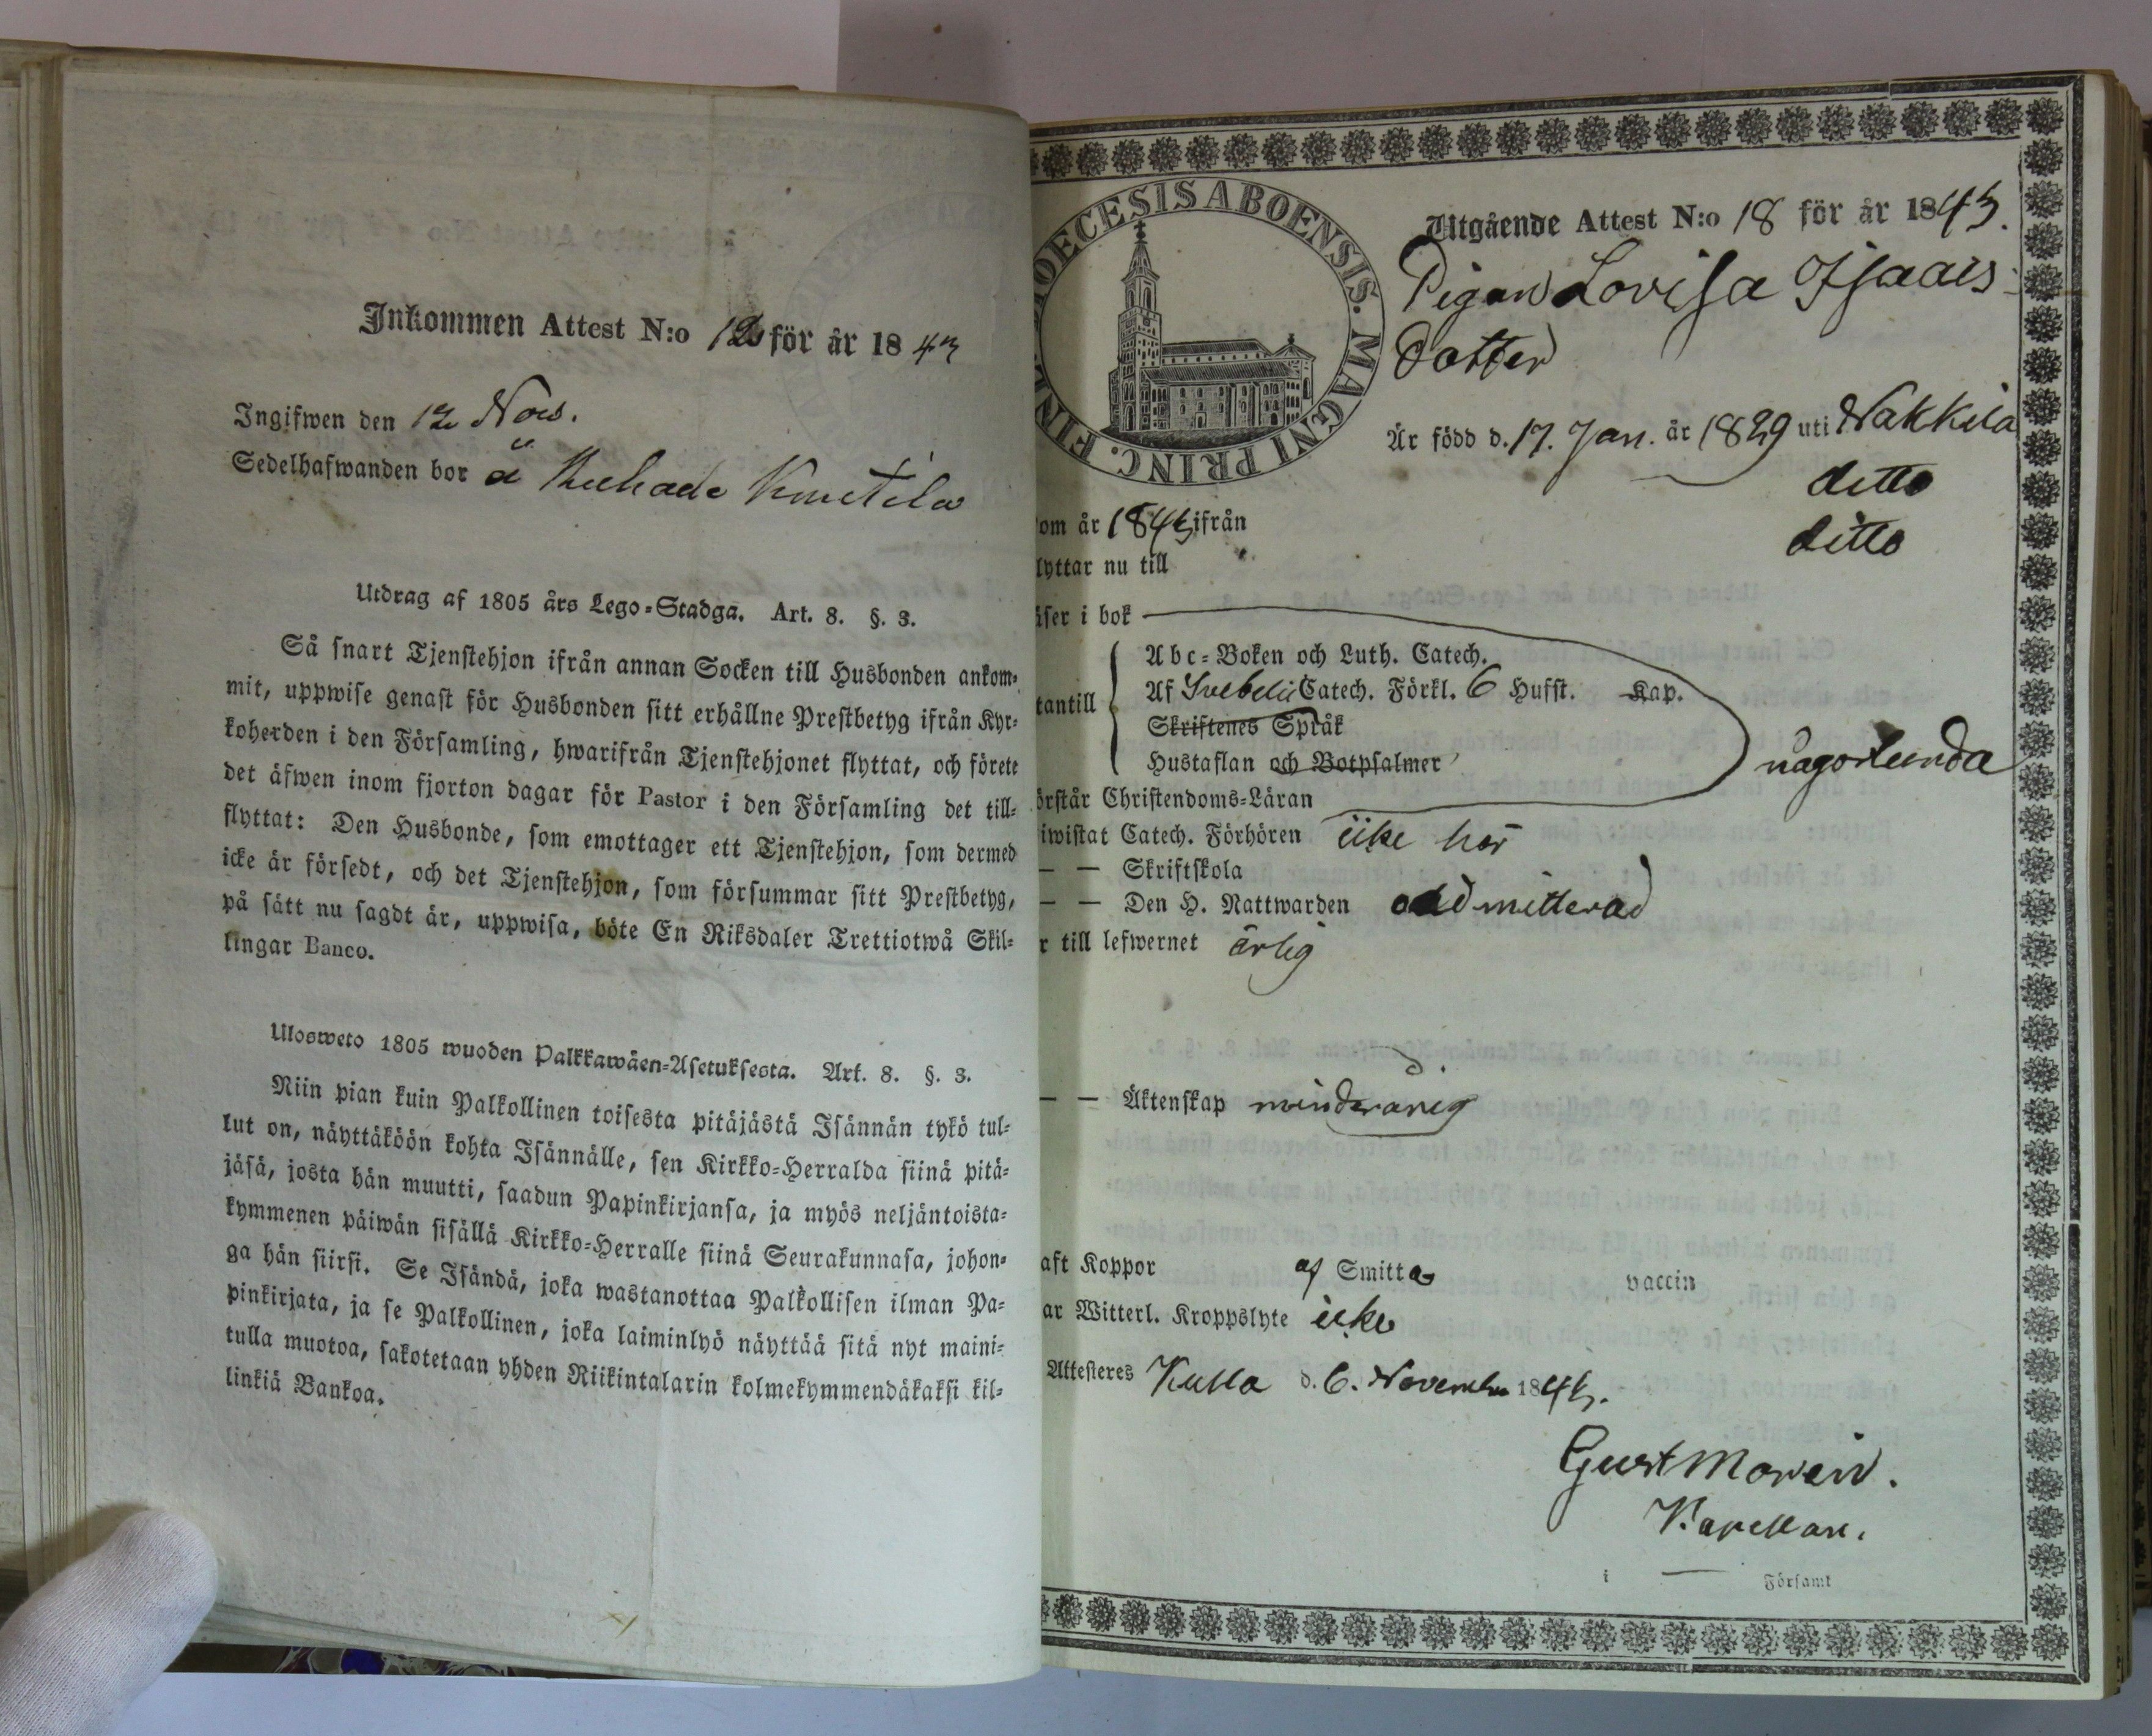 Inkommen Attest N:o 12 för år 1843
Ingifwen den 12 Nov.
Sedelhafwanden bor å
Utdrag af 1805 års Lego-Stadga. Art. 8. §. 3.
Så snart Tjenstehjon ifrån annan Socken till Husbonden ankom-
mit, uppwise genast för Husbonden sitt erhållne Prestbetyg ifrån Kyr-
koherden i den Församling, hwarifrån Tjenstehjonet flyttat, och förete
det äfwen inom fjorton dagar för Pastor i den Församling det till-
flyttat: Den Husbonde, som emottager ett Tjenstehjon, som dermed
icke är försedt, och det Tjenstehjon, som försummar sitt Prestbetyg,
på sätt nu sagdt är, uppwisa, böte En Riksdaler Trettiotwå Skil-
lingar Banco.
Ulosweto 1805 wuoden Palkkawäen-Asetuksesta. Art. 8. §. 3.
Niin pian kuin Palkollinen toisesta pitäjästä Isännän tykö tul-
lut on, näyttäköön kohta Isännälle, sen Kirkko-Herralda siinä pitä-
jäsä, josta hän muutti, saadun Papinkirjansa, ja myös neljäntoista-
kymmenen päiwän sisällä Kirkko-Herralle siinä Seurakunnasa, johon-
ga hän siirsi. Se Isändä, joka wastanottaa Palkollisen ilman Pa-
pinkirjata, ja se Palkollinen, joka laiminlyö näyttää sitä nyt maini-
tulla muotoa, sakotetaan yhden Riikintalarin kolmekymmendäkaksi kil-
linkiä Bankoa.
DIOECESIS ABOENSIS. MAGNI PRINC. FINL.
Utgående Attest N:o 18 för år 1843.
Pigan Lovisa Isaacs
dotter
Är född d. 17. Jan. år 1829 uti Nakkila
ditto
om år 1843 ifrån
ditto
lyttar nu till
äser i bok
Abc-Boken och Luth. Catech.
tantill Af Svebelii Catech. Förkl. 6 Hufst. Kap.
Skriftenes Språk
Hustaflan och Botpsalmer
någorlunda
örstår Christendoms-Läran
iwistat Catech. Förhören icke här
— — Skriftskola
— — Den H. Nattwarden oadmitterad
r till lefwernet ärlig
— — Äktenskap minderårig
aft Koppor af Smitta vaccin
ar Witterl. Kroppslyte icke
Attesteres Kulla d. 6. November 1843.
Gust Moren.
Kapellan.
i — Församl